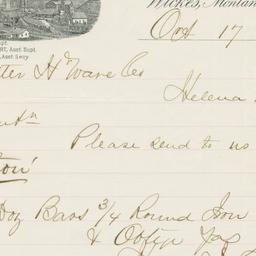 Wickes, Montan
Oct 17
upt.
RT, Asst Supt.
Asst Secy
ter Hᵈware Co
Helena
Please send to us
Doz Bars 3/4 Round Iron
&